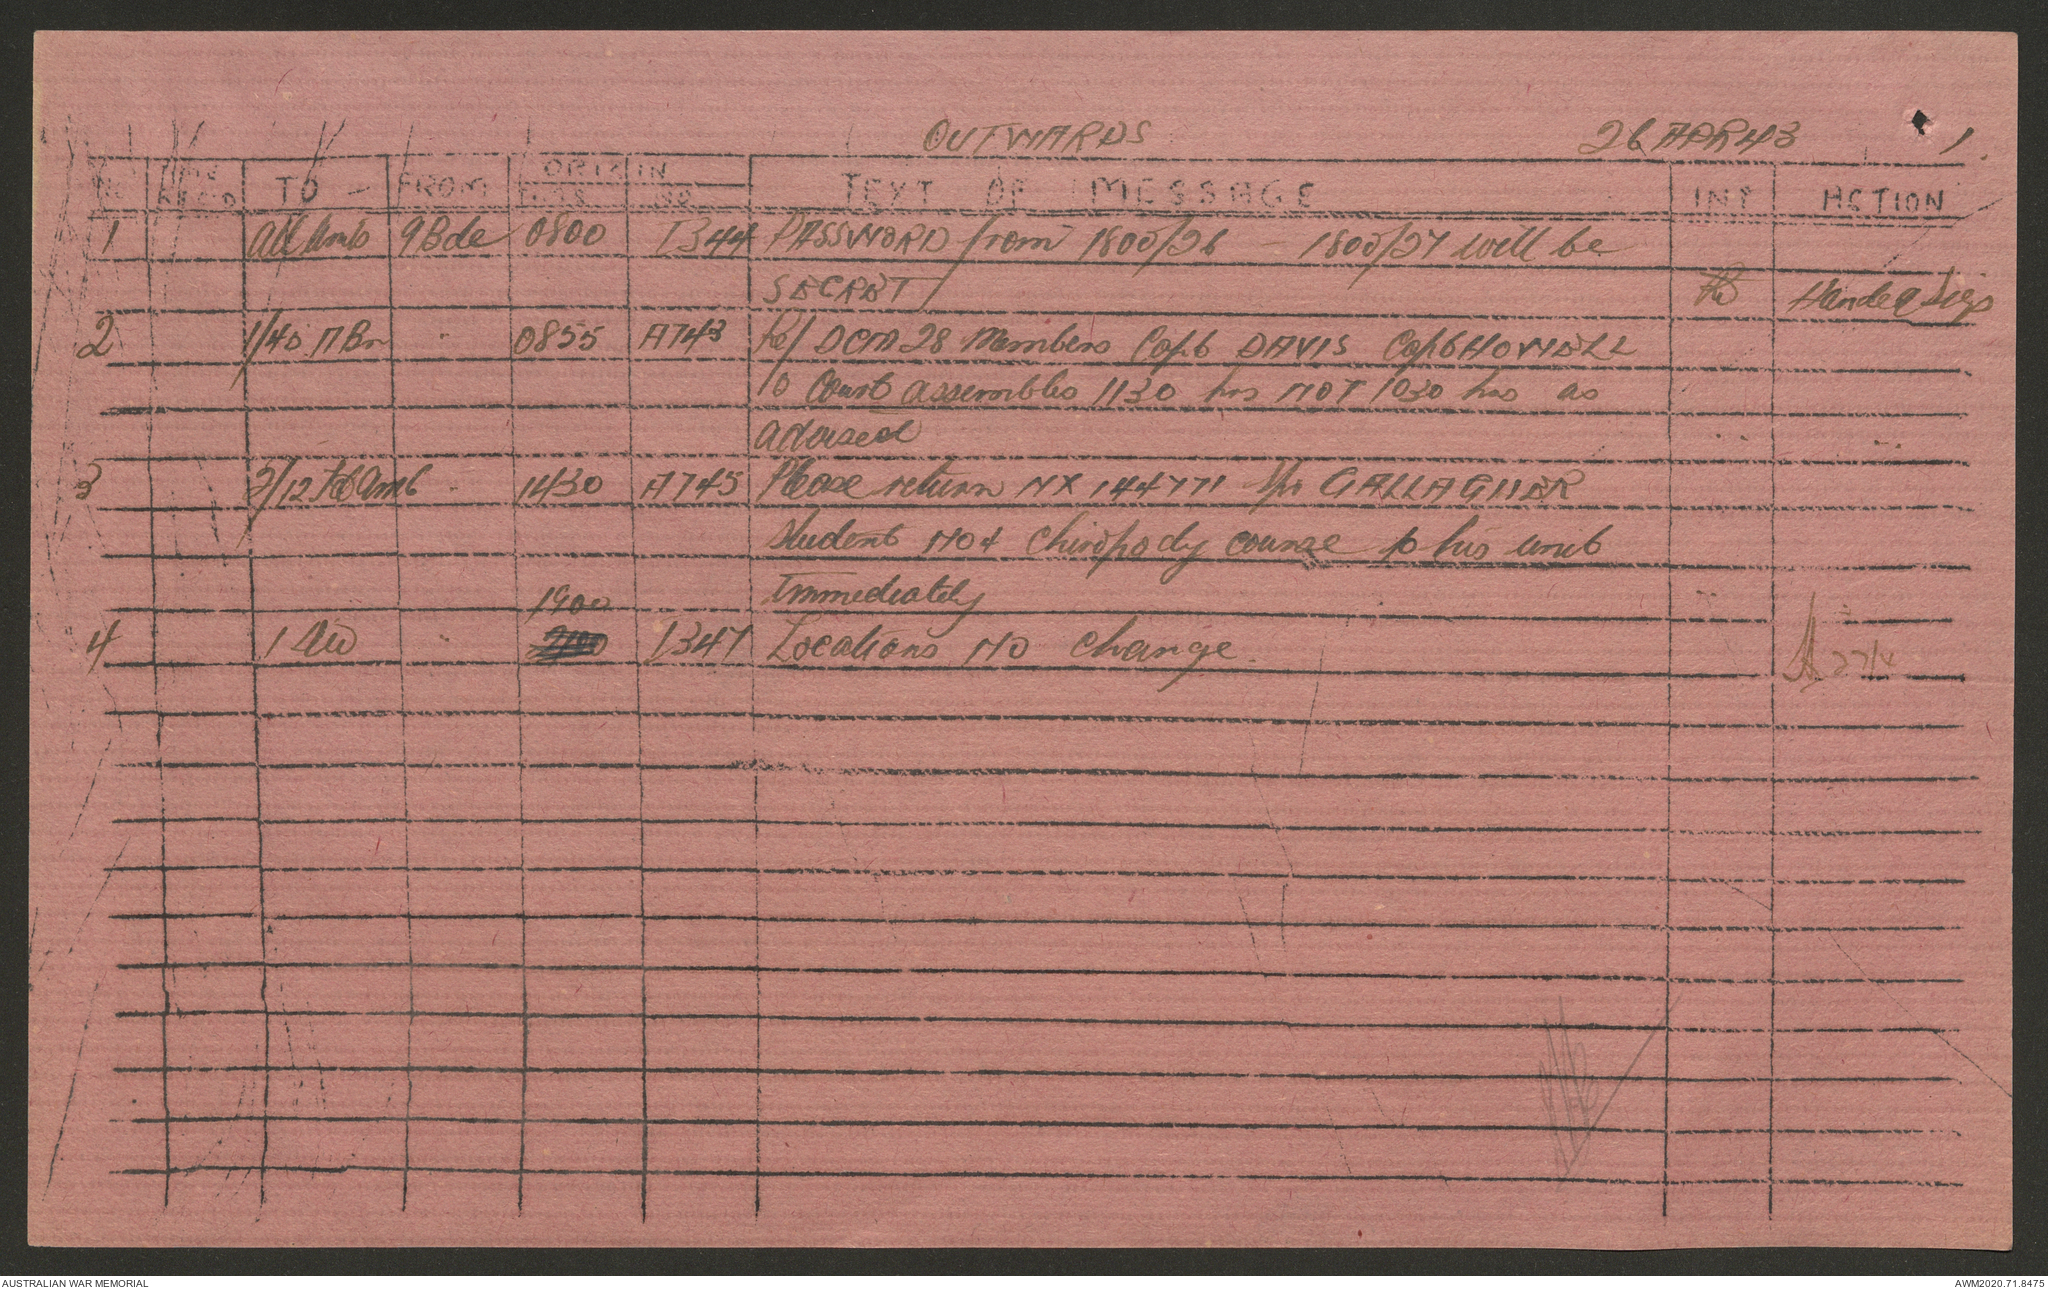 OUTWARDS 26 APR 43 1.
NO TIME REC'D TO FROM ORIGIN NO TEXT OF MESSAGE INT ACTION
1 all Units 9 Bde 0800 I344 PASSWORD from 1800/26 - 1800/27 will be
SECRET Handed Sigs
2 1/45 A Bn 0855 A743 DCM 28 Members Capt DAVIS Capt HOWELL
Court assembles 1130 hrs NOT 1030 hrs as
advised
3 2/12 Fd Amb 1430 A745 Please return NX 144771 GALLAGHER
Student NO 4 Chiropody course to his unit
1900 Immediately
4 1 Div I347 Locations NO change. 27/4
AUSTRALIAN WAR MEMORIAL AWM2020.71.8475